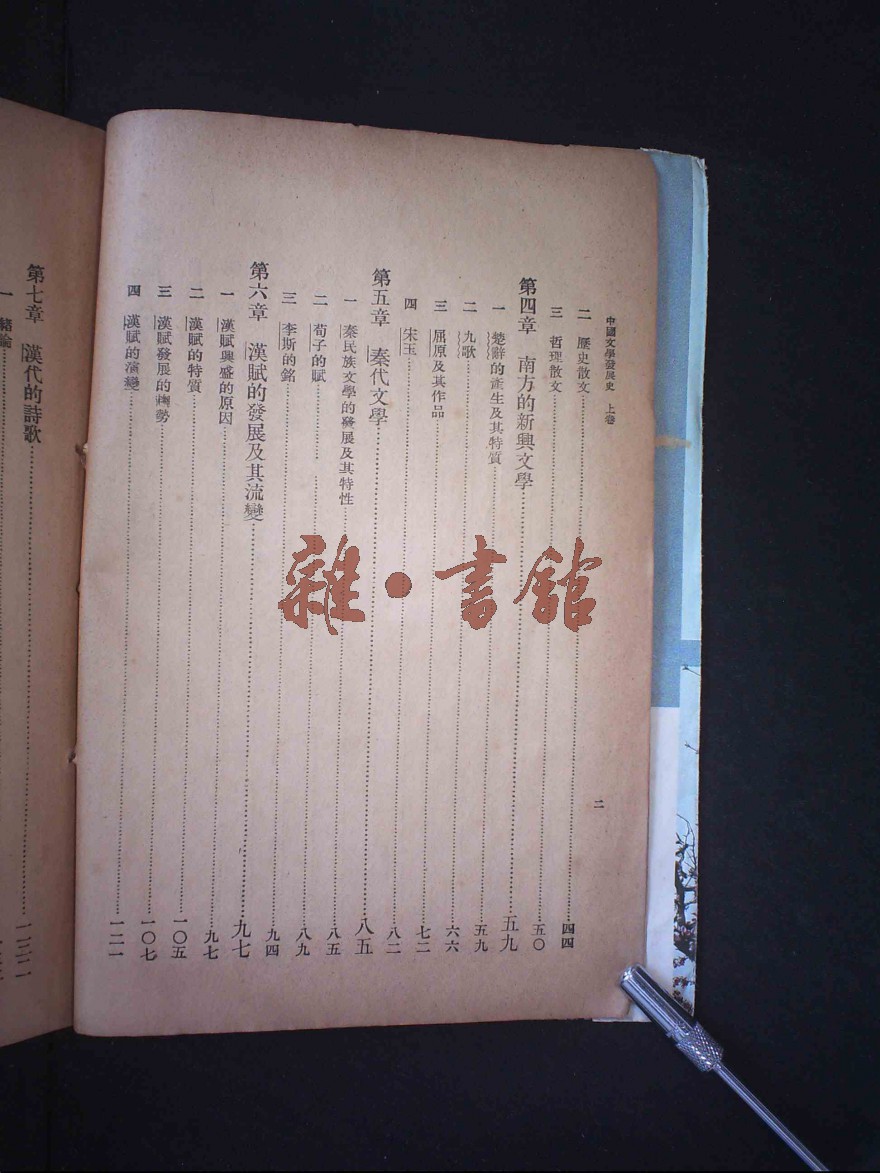 中國文學發展史　上卷
二　歷史散文……四四
三　哲理散文……五〇
第四章　南方的新興文學……五九
一　楚辭的產生及其特質……五九
二　九歌……六六
三　屈原及其作品……七二
四　宋玉……八二
第五章　秦代文學……八五
一　秦民族文學的發展及其特性……八五
二　荀子的賦……八九
三　李斯的銘……九四
第六章　漢賦的發展及其流變……九七
一　漢賦興盛的原因……九七
二　漢賦的特質……一〇五
三　漢賦發展的趨勢……一〇七
四　漢賦的演變……一二一
二
第七章　漢代的詩歌
一　緒論
雜·書館